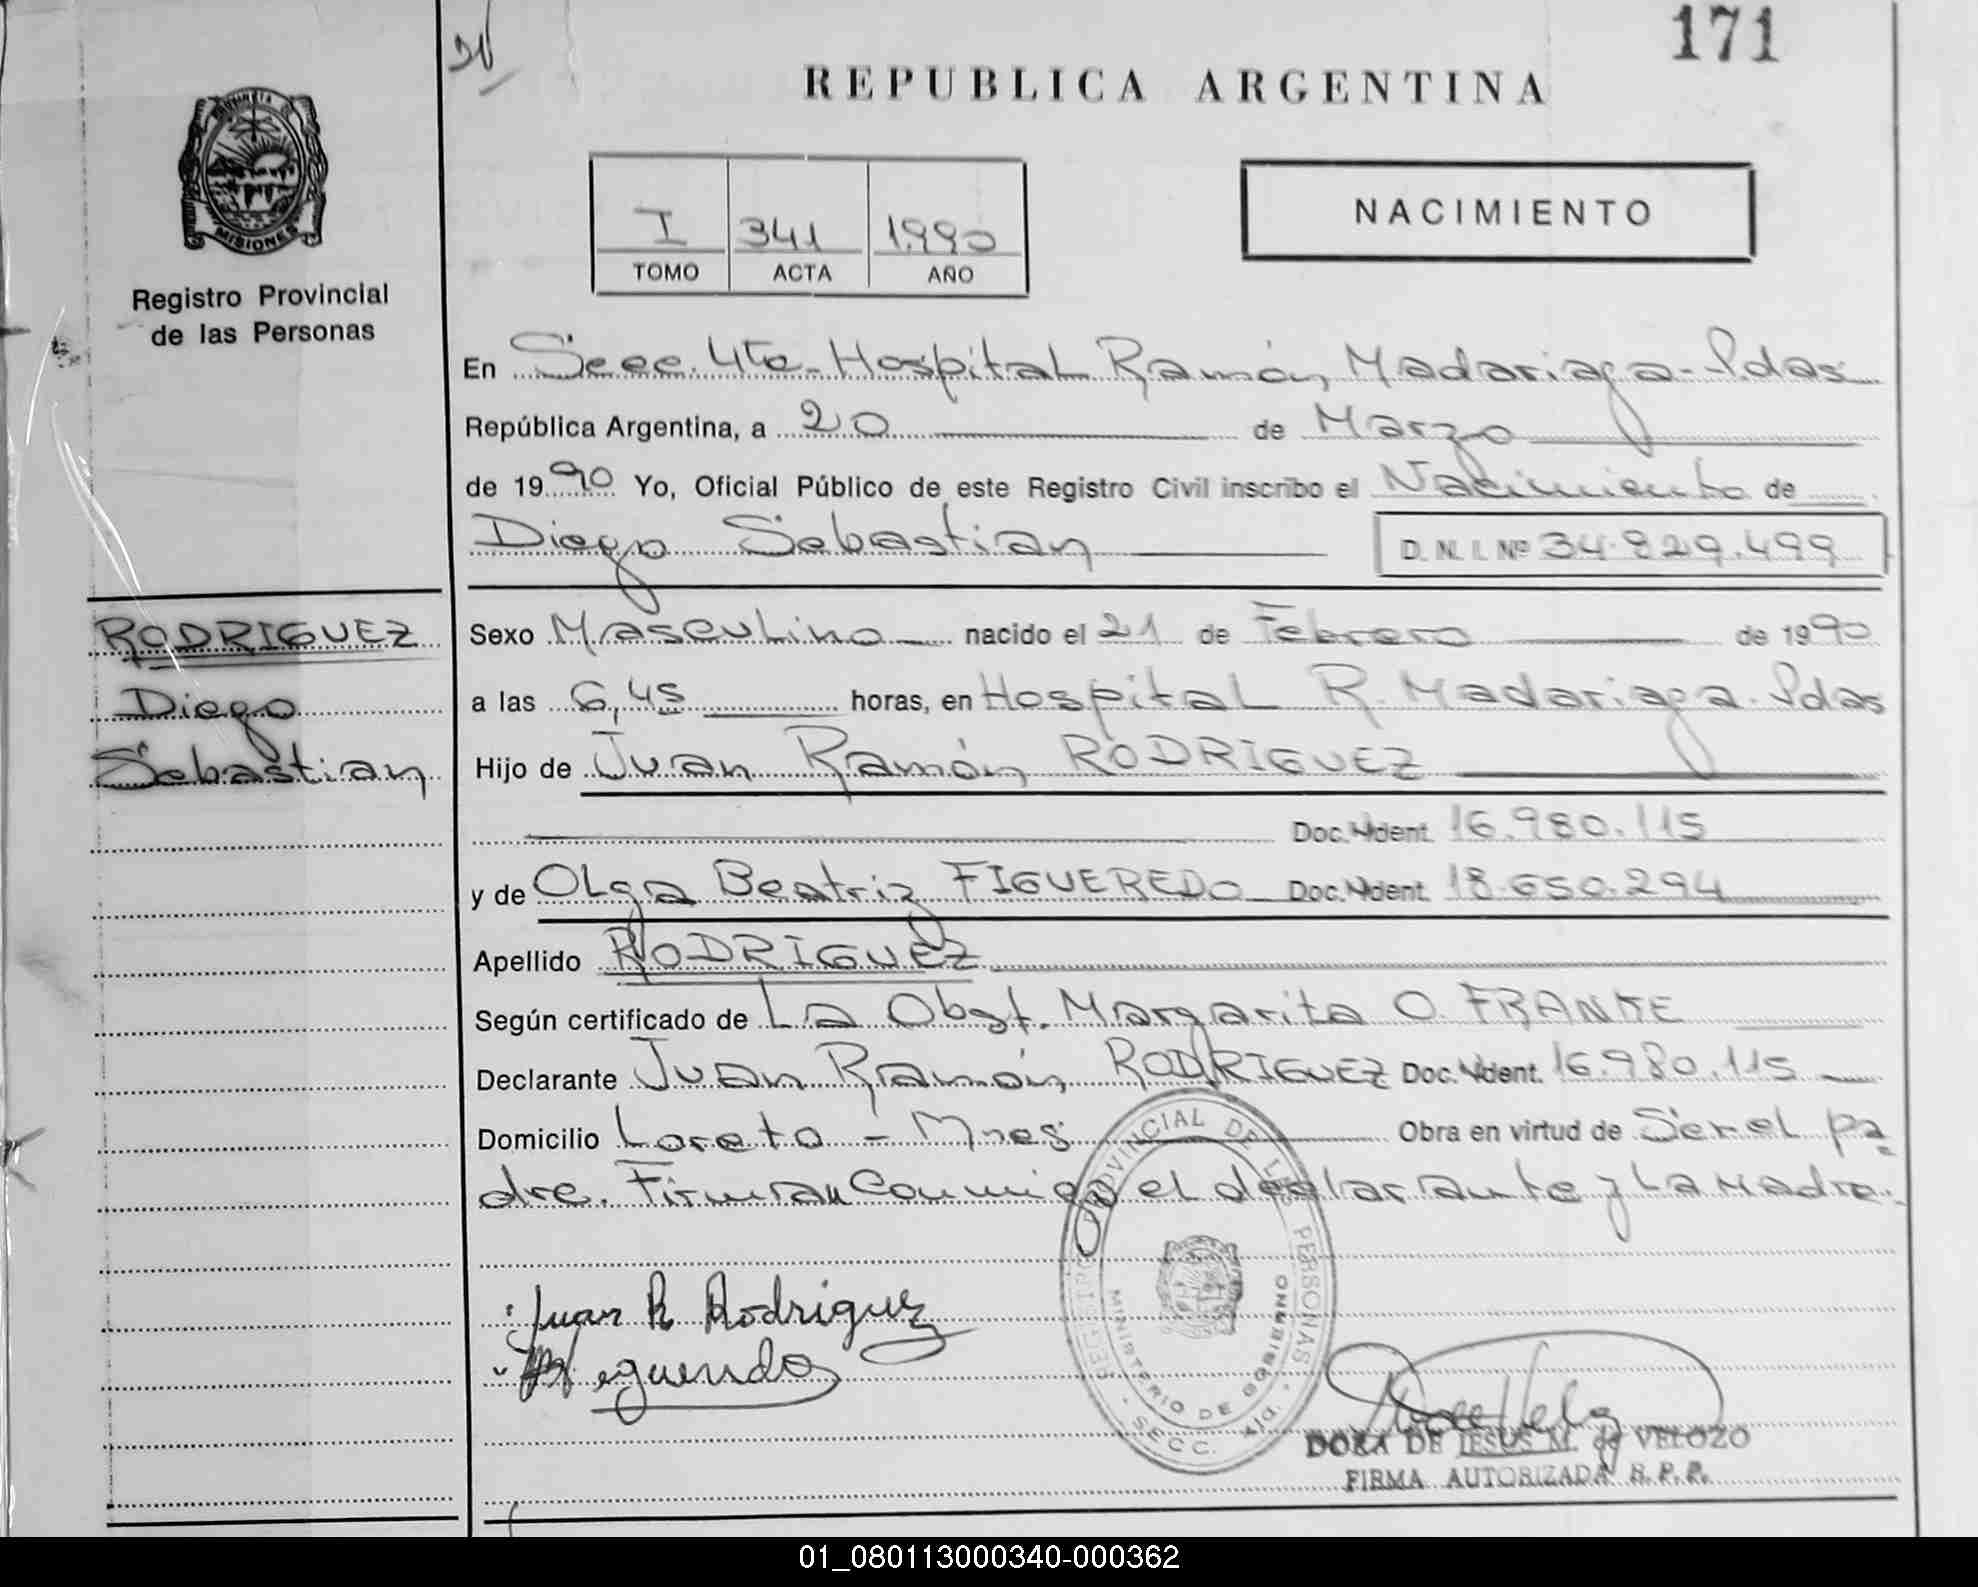 171
REPUBLICA ARGENTINA
PROVINCIA DE
MISIONES
Registro Provincial
de las Personas
I 341 1.990
TOMO ACTA AÑO
NACIMIENTO
En Secc. 4ta - Hospital Ramón Madariaga - Pdas
República Argentina, a 20 de Marzo
de 1990 Yo, Oficial Público de este Registro Civil inscribo el Nacimiento de
Diego Sebastian D.N.I. Nº 34.829.499
RODRIGUEZ
Diego
Sebastian
Sexo Masculino nacido el 21 de Febrero de 1990
a las 6,45 horas, en Hospital R. Madariaga - Pdas
Hijo de Juan Ramón RODRIGUEZ
Doc. Ident. 16.980.115
y de Olga Beatriz FIGUEREDO Doc. Ident. 18.650.294
Apellido RODRIGUEZ
Según certificado de La Obst. Margarita O. FRANKE
Declarante Juan Ramón RODRIGUEZ Doc. Ident. 16.980.115
Domicilio Loreto - Mnes Obra en virtud de Ser el pa
dre. Firman Conmigo el declarante y La Madre.
REGISTRO PROVINCIAL DE LAS PERSONAS
MINISTERIO DE GOBIERNO
SECC. 4ta.
Juan R Rodriguez
DORA DE JESUS M. de VELOZO
FIRMA AUTORIZADA R.P.P.
01_080113000340-000362